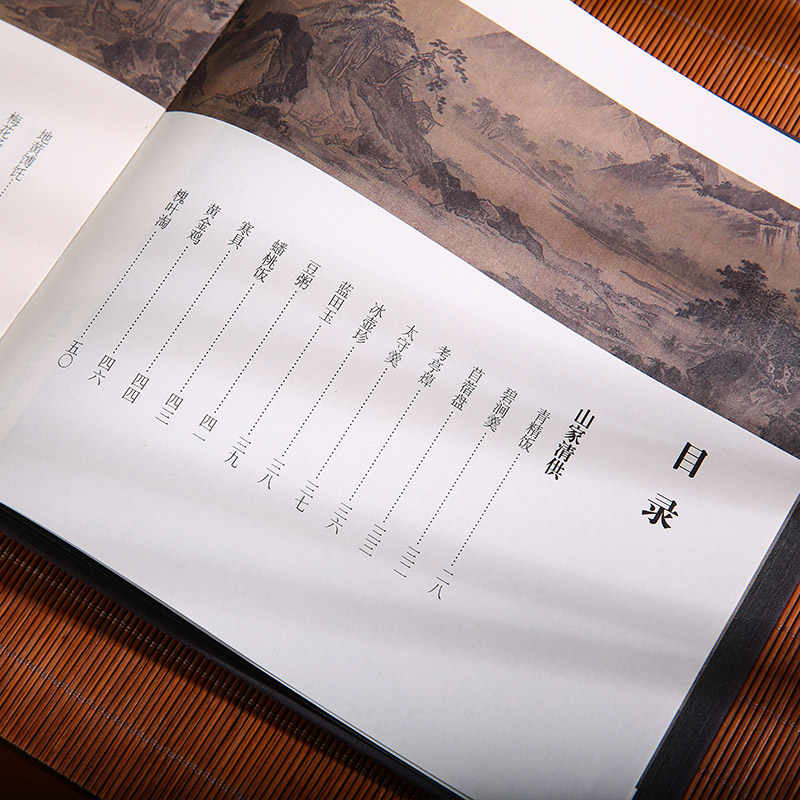 目录
山家清供
青精饭……二八
碧涧羹……三二
苜蓿盘……三三
考亭蔊……三六
太守羹……三七
冰壶珍……三八
蓝田玉……三九
豆粥……四一
蟠桃饭……四三
寒具……四四
黄金鸡……四六
槐叶淘……五〇
地黄馎饦……
梅花